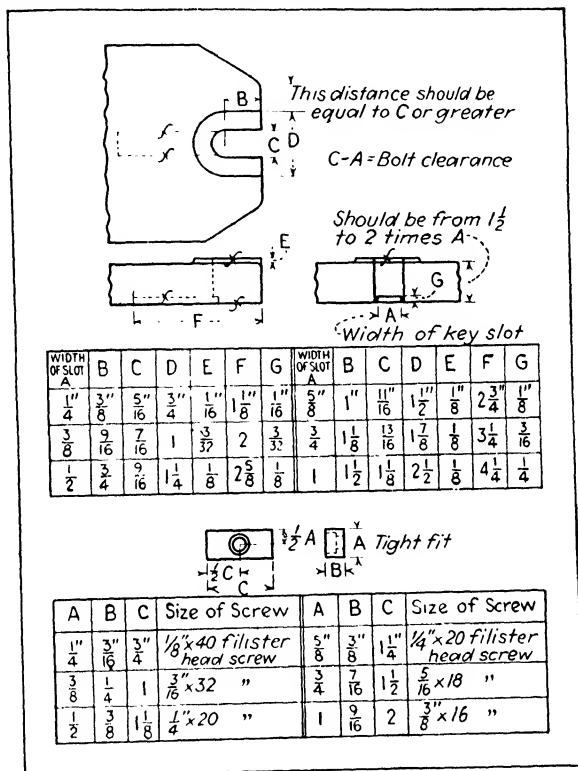 This distance should be
equal to C or greater
B
C
D
C-A = Bolt clearance
Should be from 1 1/2
to 2 times A
E
G
F
A
Width of key slot
WIDTH OF SLOT A B C D E F G WIDTH OF SLOT A B C D E F G
1/4" 3/8" 5/16" 3/4" 1/16" 1 1/8" 1/16" 5/8" 1" 11/16" 1 1/2" 1/8" 2 3/4" 1/8"
3/8 9/16 7/16 1 3/32 2 3/32 3/4 1 1/8 13/16 1 7/8 1/8 3 1/4 3/16
1/2 3/4 9/16 1 1/4 1/8 2 5/8 1/8 1 1 1/2 1 1/8 2 1/2 1/8 4 1/4 1/4
1/2 A
A Tight fit
1/2 C
B
C
A B C Size of Screw A B C Size of Screw
1/4" 3/16" 3/4" 1/8" x 40 filister head screw 5/8" 3/8" 1 1/4" 1/4" x 20 filister head screw
3/8 1/4 1 3/16" x 32 " 3/4 7/16 1 1/2 5/16 x 18 "
1/2 3/8 1 1/8 1/4" x 20 " 1 9/16 2 3/8" x 16 "